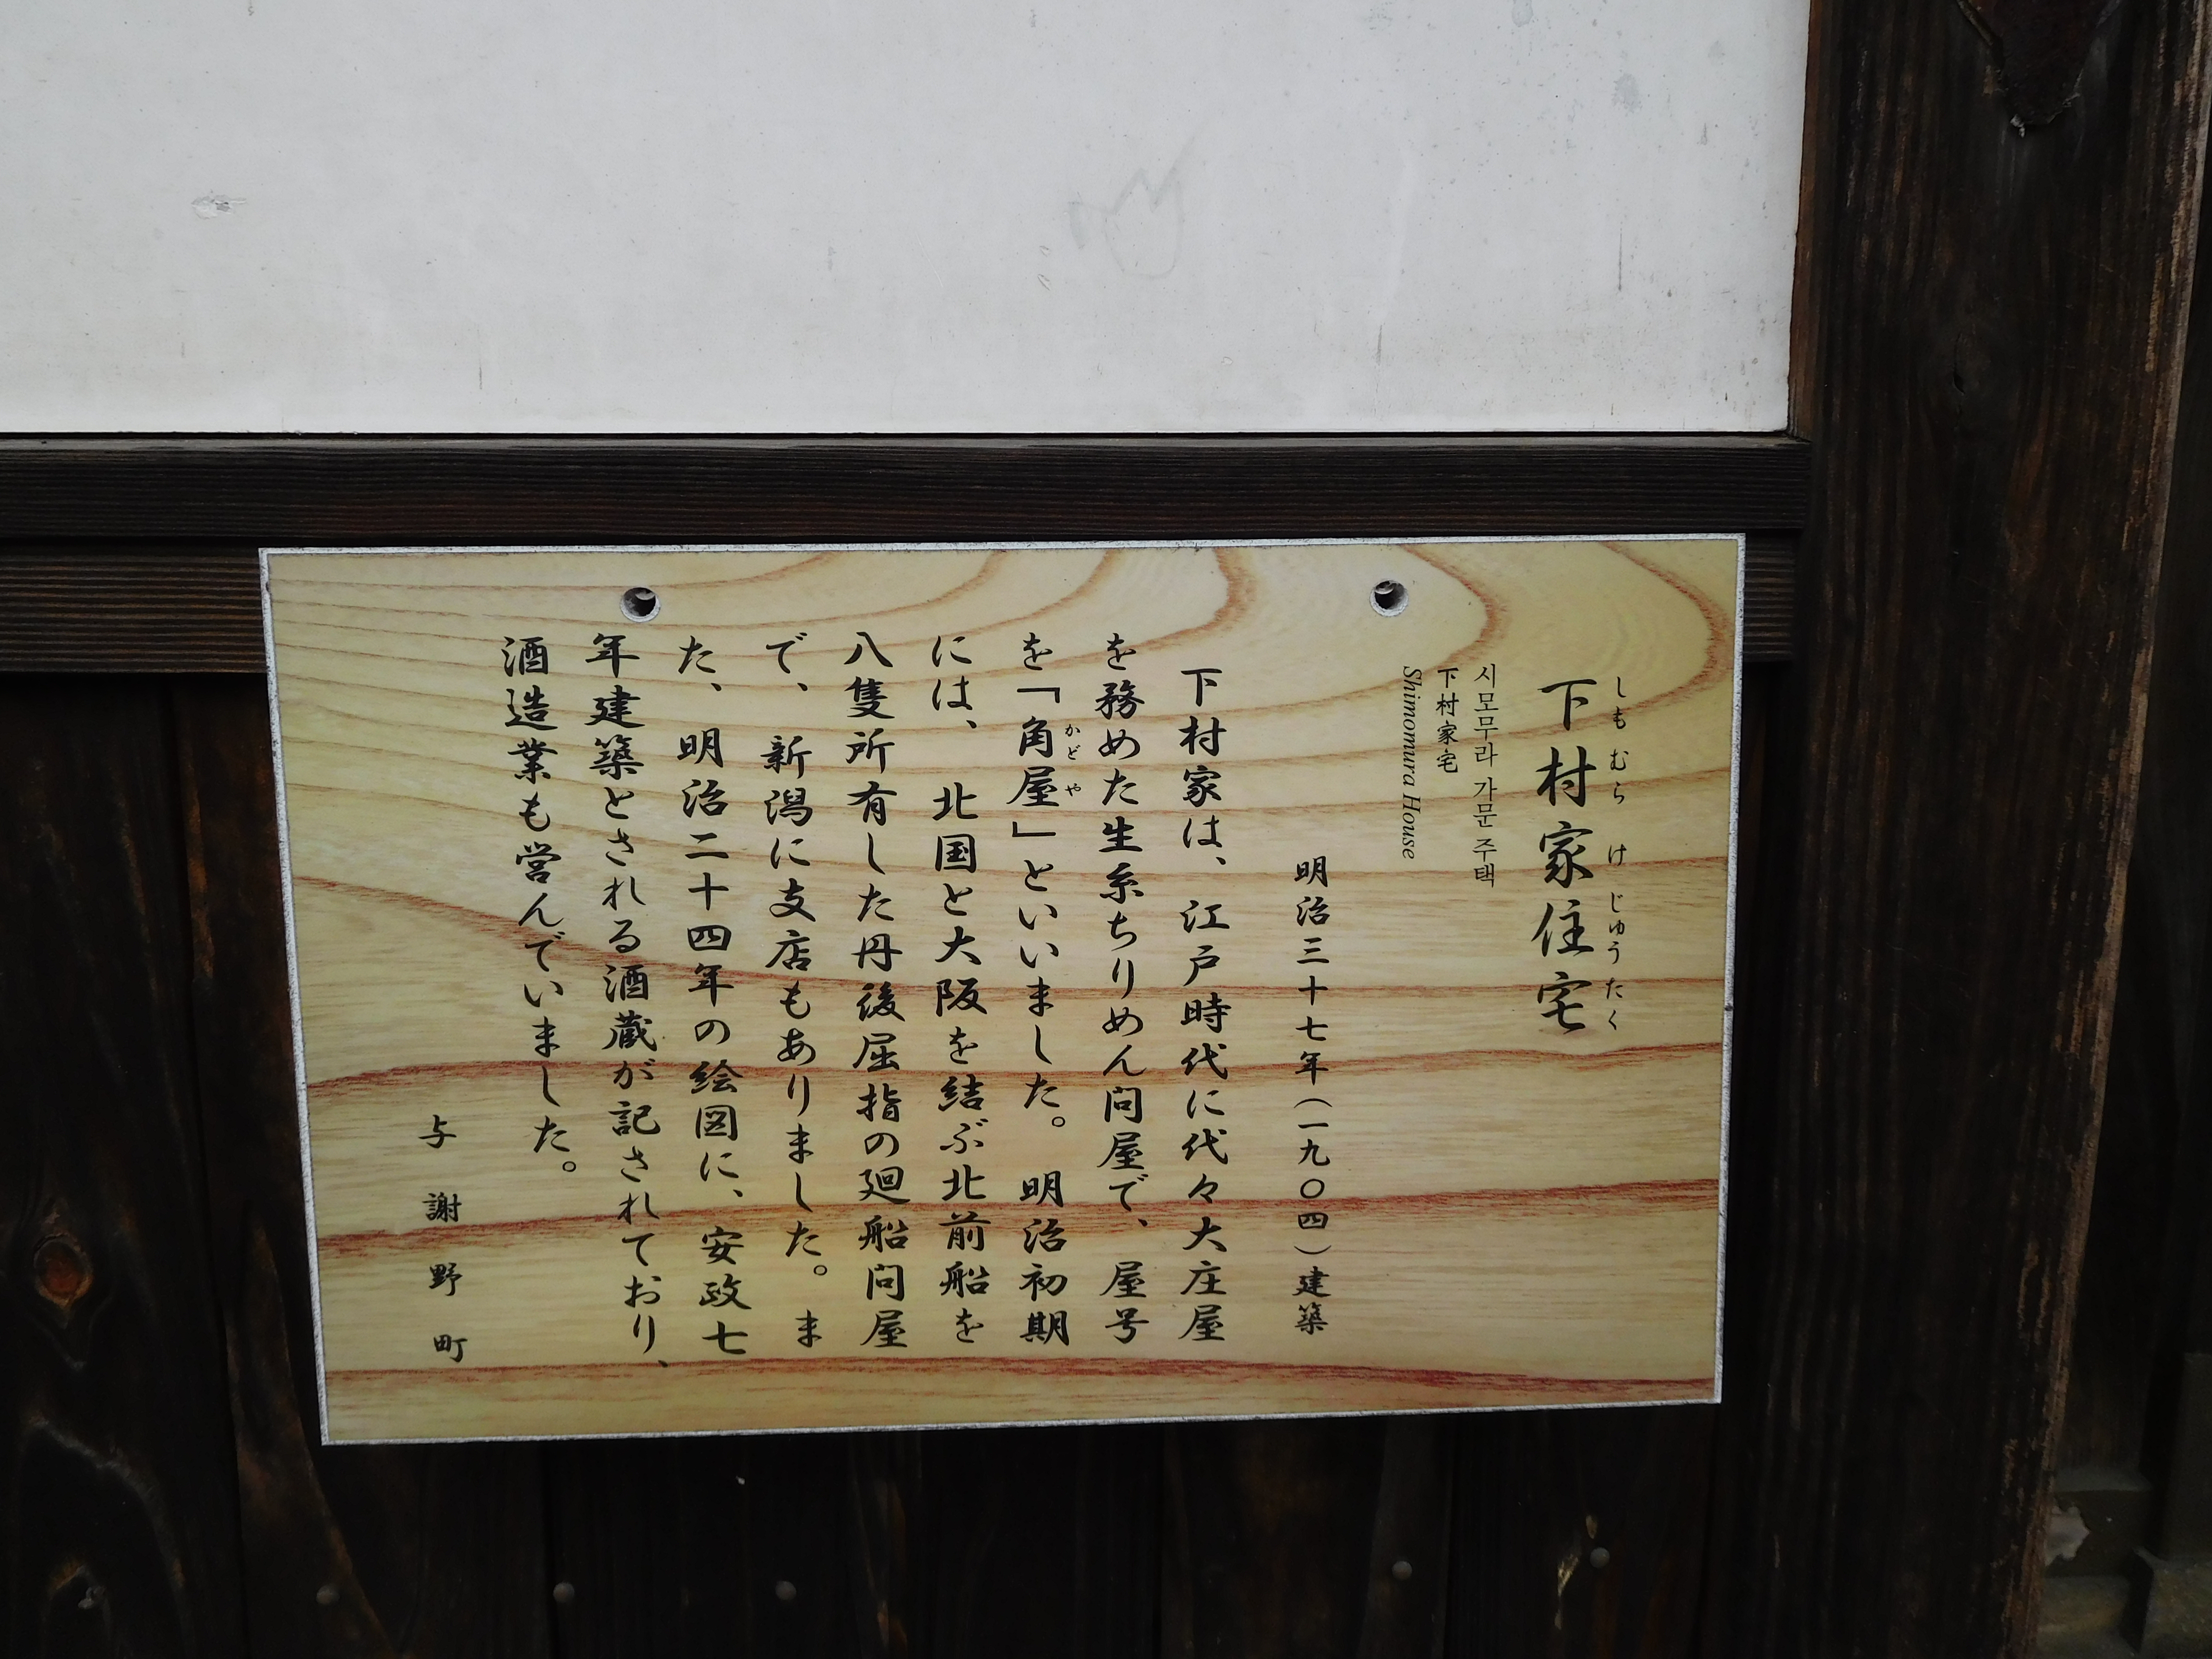 下村家住宅
しもむらけじゅうたく
시모무라 가문 주택
下村家宅
Shimomura House
明治三十七年（一九〇四）建築
下村家は、江戸時代に代々大庄屋
を務めた生糸ちりめん問屋で、屋号
を「角屋」といいました。明治初期
かどや
には、北国と大阪を結ぶ北前船を
八隻所有した丹後屈指の廻船問屋
で、新潟に支店もありました。ま
た、明治二十四年の絵図に、安政七
年建築とされる酒蔵が記されており、
酒造業も営んでいました。
与謝野町